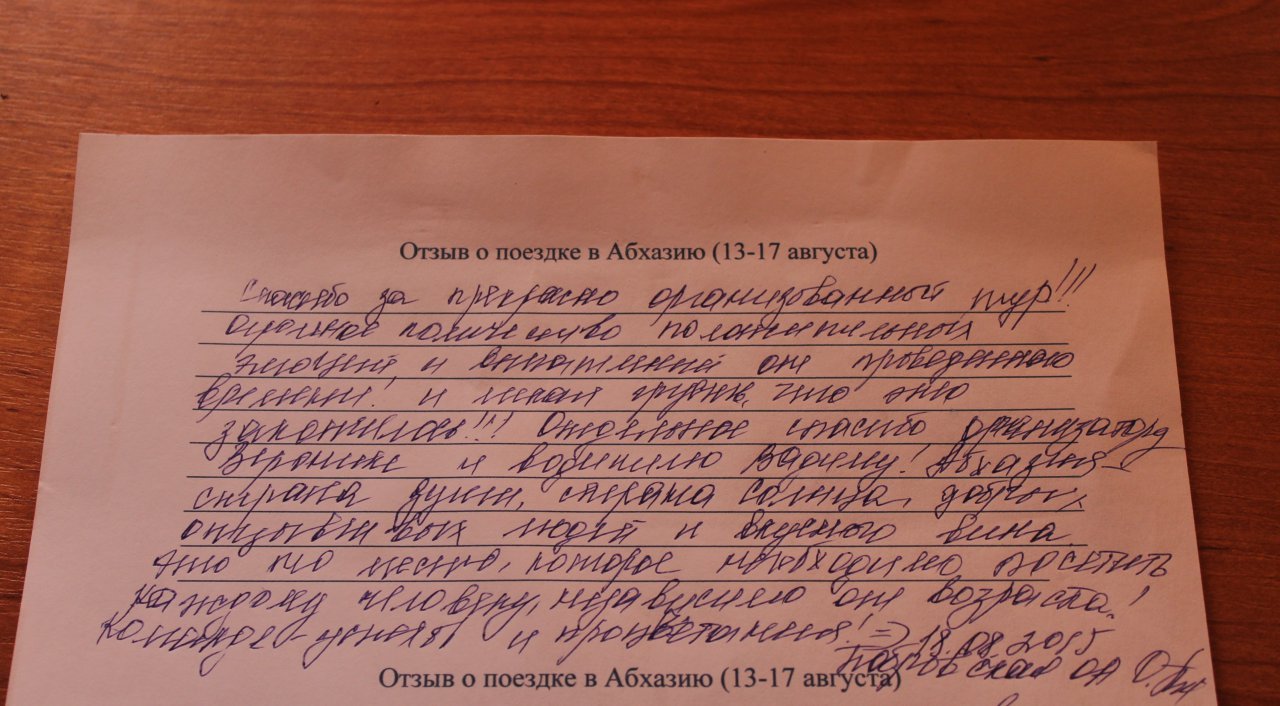 Отзыв о поездке в Абхазию (13-17 августа)
Спасибо за прекрасно организованный тур!!!
огромное количество положительных
эмоций и впечатлений от проведенного
времени! и легкая грусть, что это
закончилось!!! Отдельное спасибо организатору
Веронике и водителю Вадиму! Абхазия-
страна души, страна Солнца, добрых,
отзывчивых людей и вкусного вина.
Это то место, которое необходимо посетить
каждому человеку, независимо от возраста!
Команде - успехов и процветания! => 18.08.2015
Отзыв о поездке в Абхазию (13-17 августа)